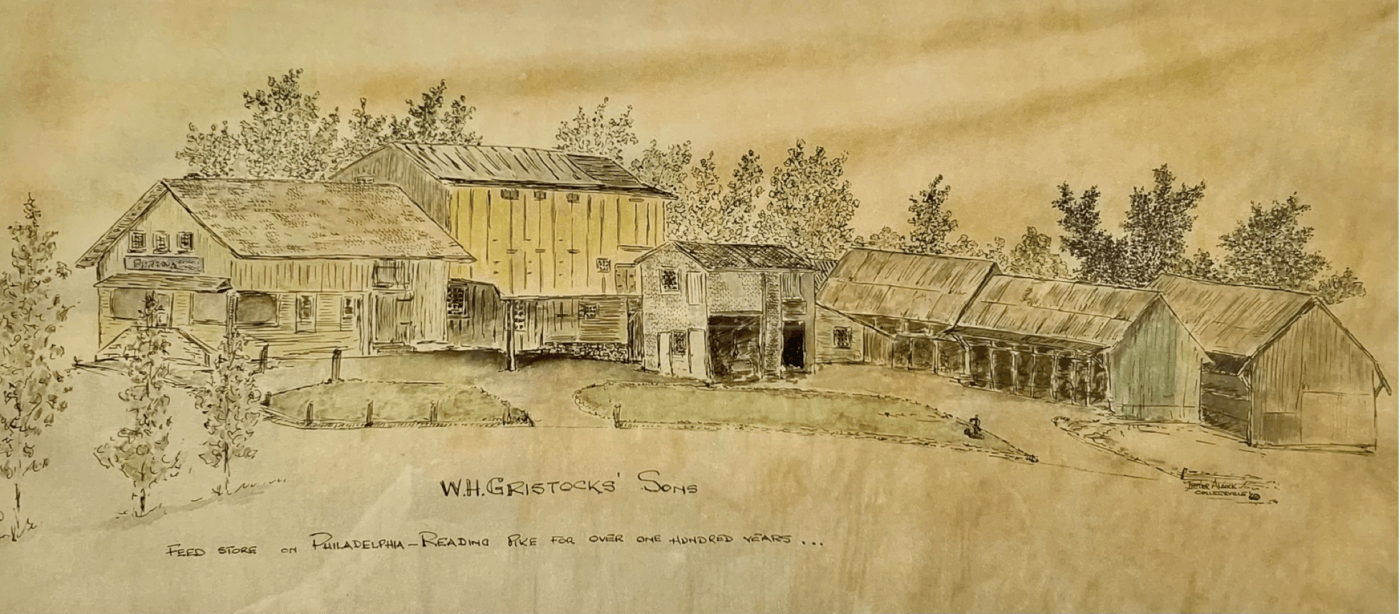 PURINA
W.H. GRISTOCKS' SONS
COLLEGEVILLE
FEED STORE ON PHILADELPHIA–READING PIKE FOR OVER ONE HUNDRED YEARS ...